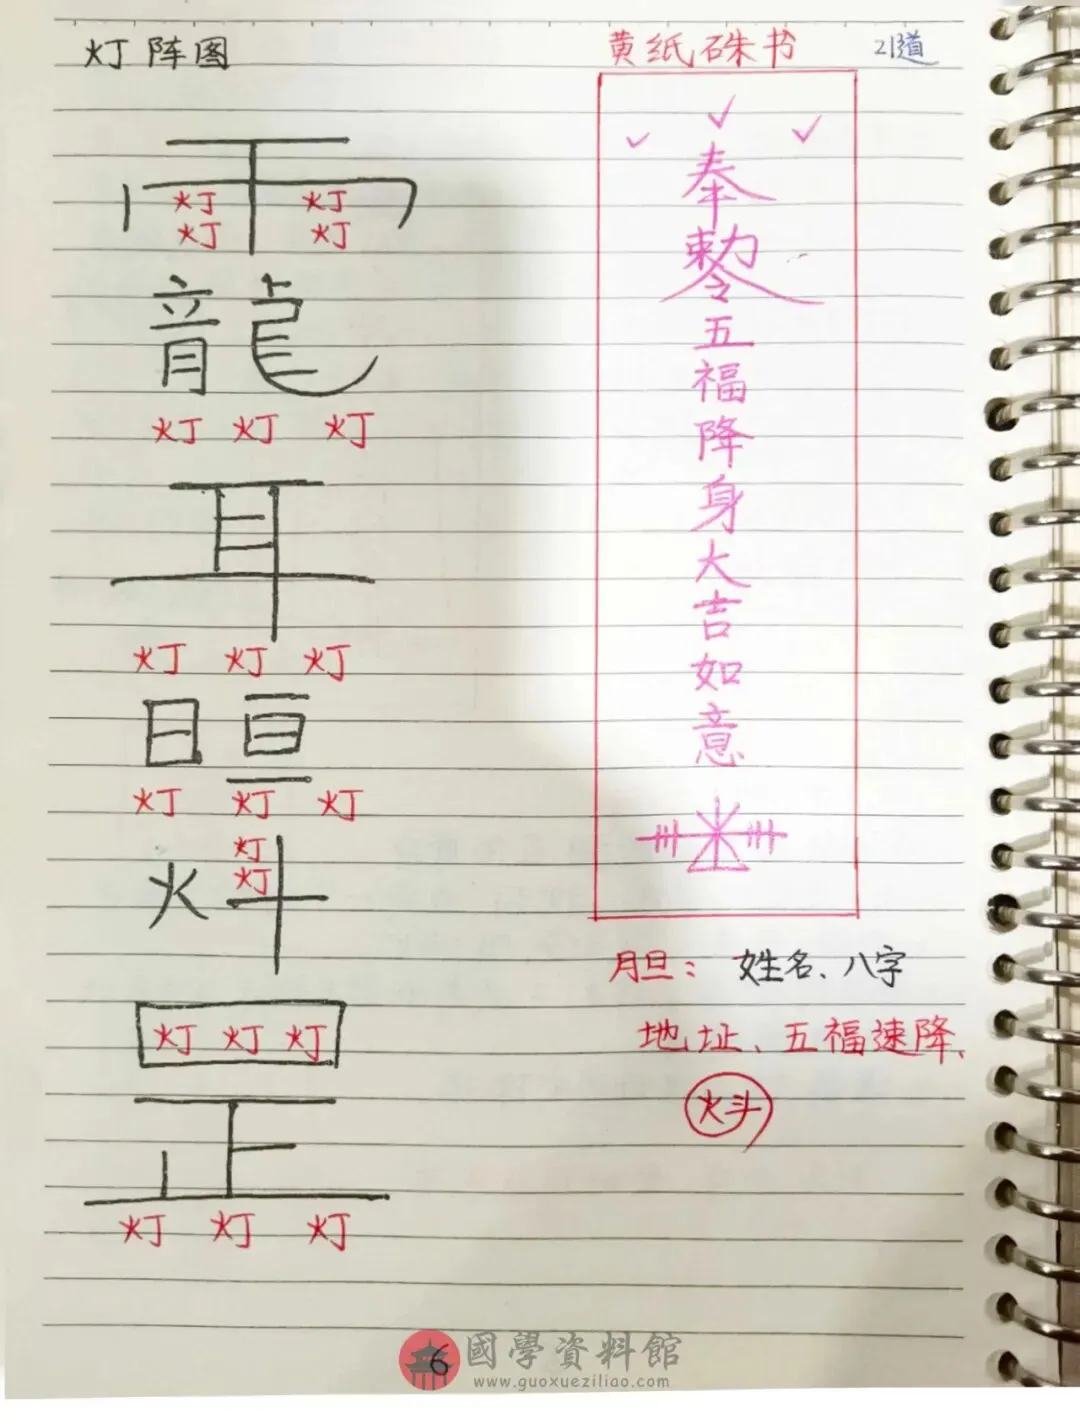 灯阵图
雨
灯 灯
灯 灯
龍
灯 灯 灯
耳
灯 灯 灯
日 亘
灯 灯 灯
灯
灯
火斗
灯 灯 灯
正
灯 灯 灯
黄纸硃书 21道
奉
勅令
五
福
降
身
大
吉
如
意
月旦: 姓名、八字
地址、五福速降、
火斗
6
國學資料館
www.guoxueziliao.com